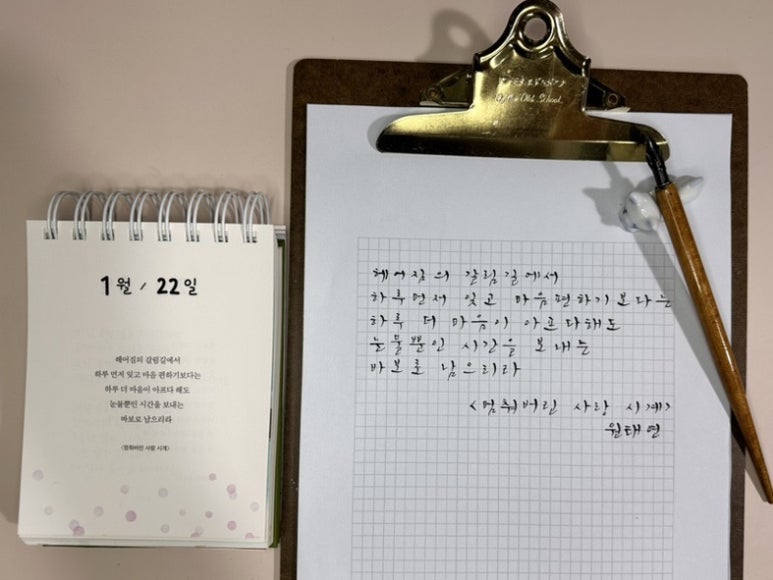 1월 / 22일
헤어짐의 갈림길에서
하루 먼저 잊고 마음 편하기보다는
하루 더 마음이 아프다 해도
눈물뿐인 시간을 보내는
바보로 남으리라
<멈춰버린 사랑 시계>
Old School
헤어짐의 갈림길에서
하루먼저 잊고 마음편하기보다는
하루 더 마음이 아프다해도
눈물뿐인 시간을 보내는
바보로 남으리라
<멈춰버린 사랑 시계>
원태연